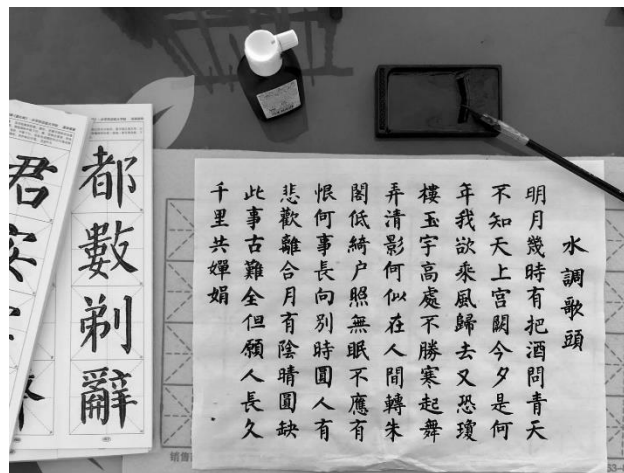 水調歌頭
明月幾時有把酒問青天
不知天上宫闕今夕是何
年我欲乘風歸去又恐瓊
樓玉宇高處不勝寒起舞
弄清影何似在人間轉朱
閣低綺户照無眠不應有
恨何事長向別時圓人有
悲歡離合月有陰晴圓缺
此事古難全但願人長久
千里共嬋娟
都數剃辭
君